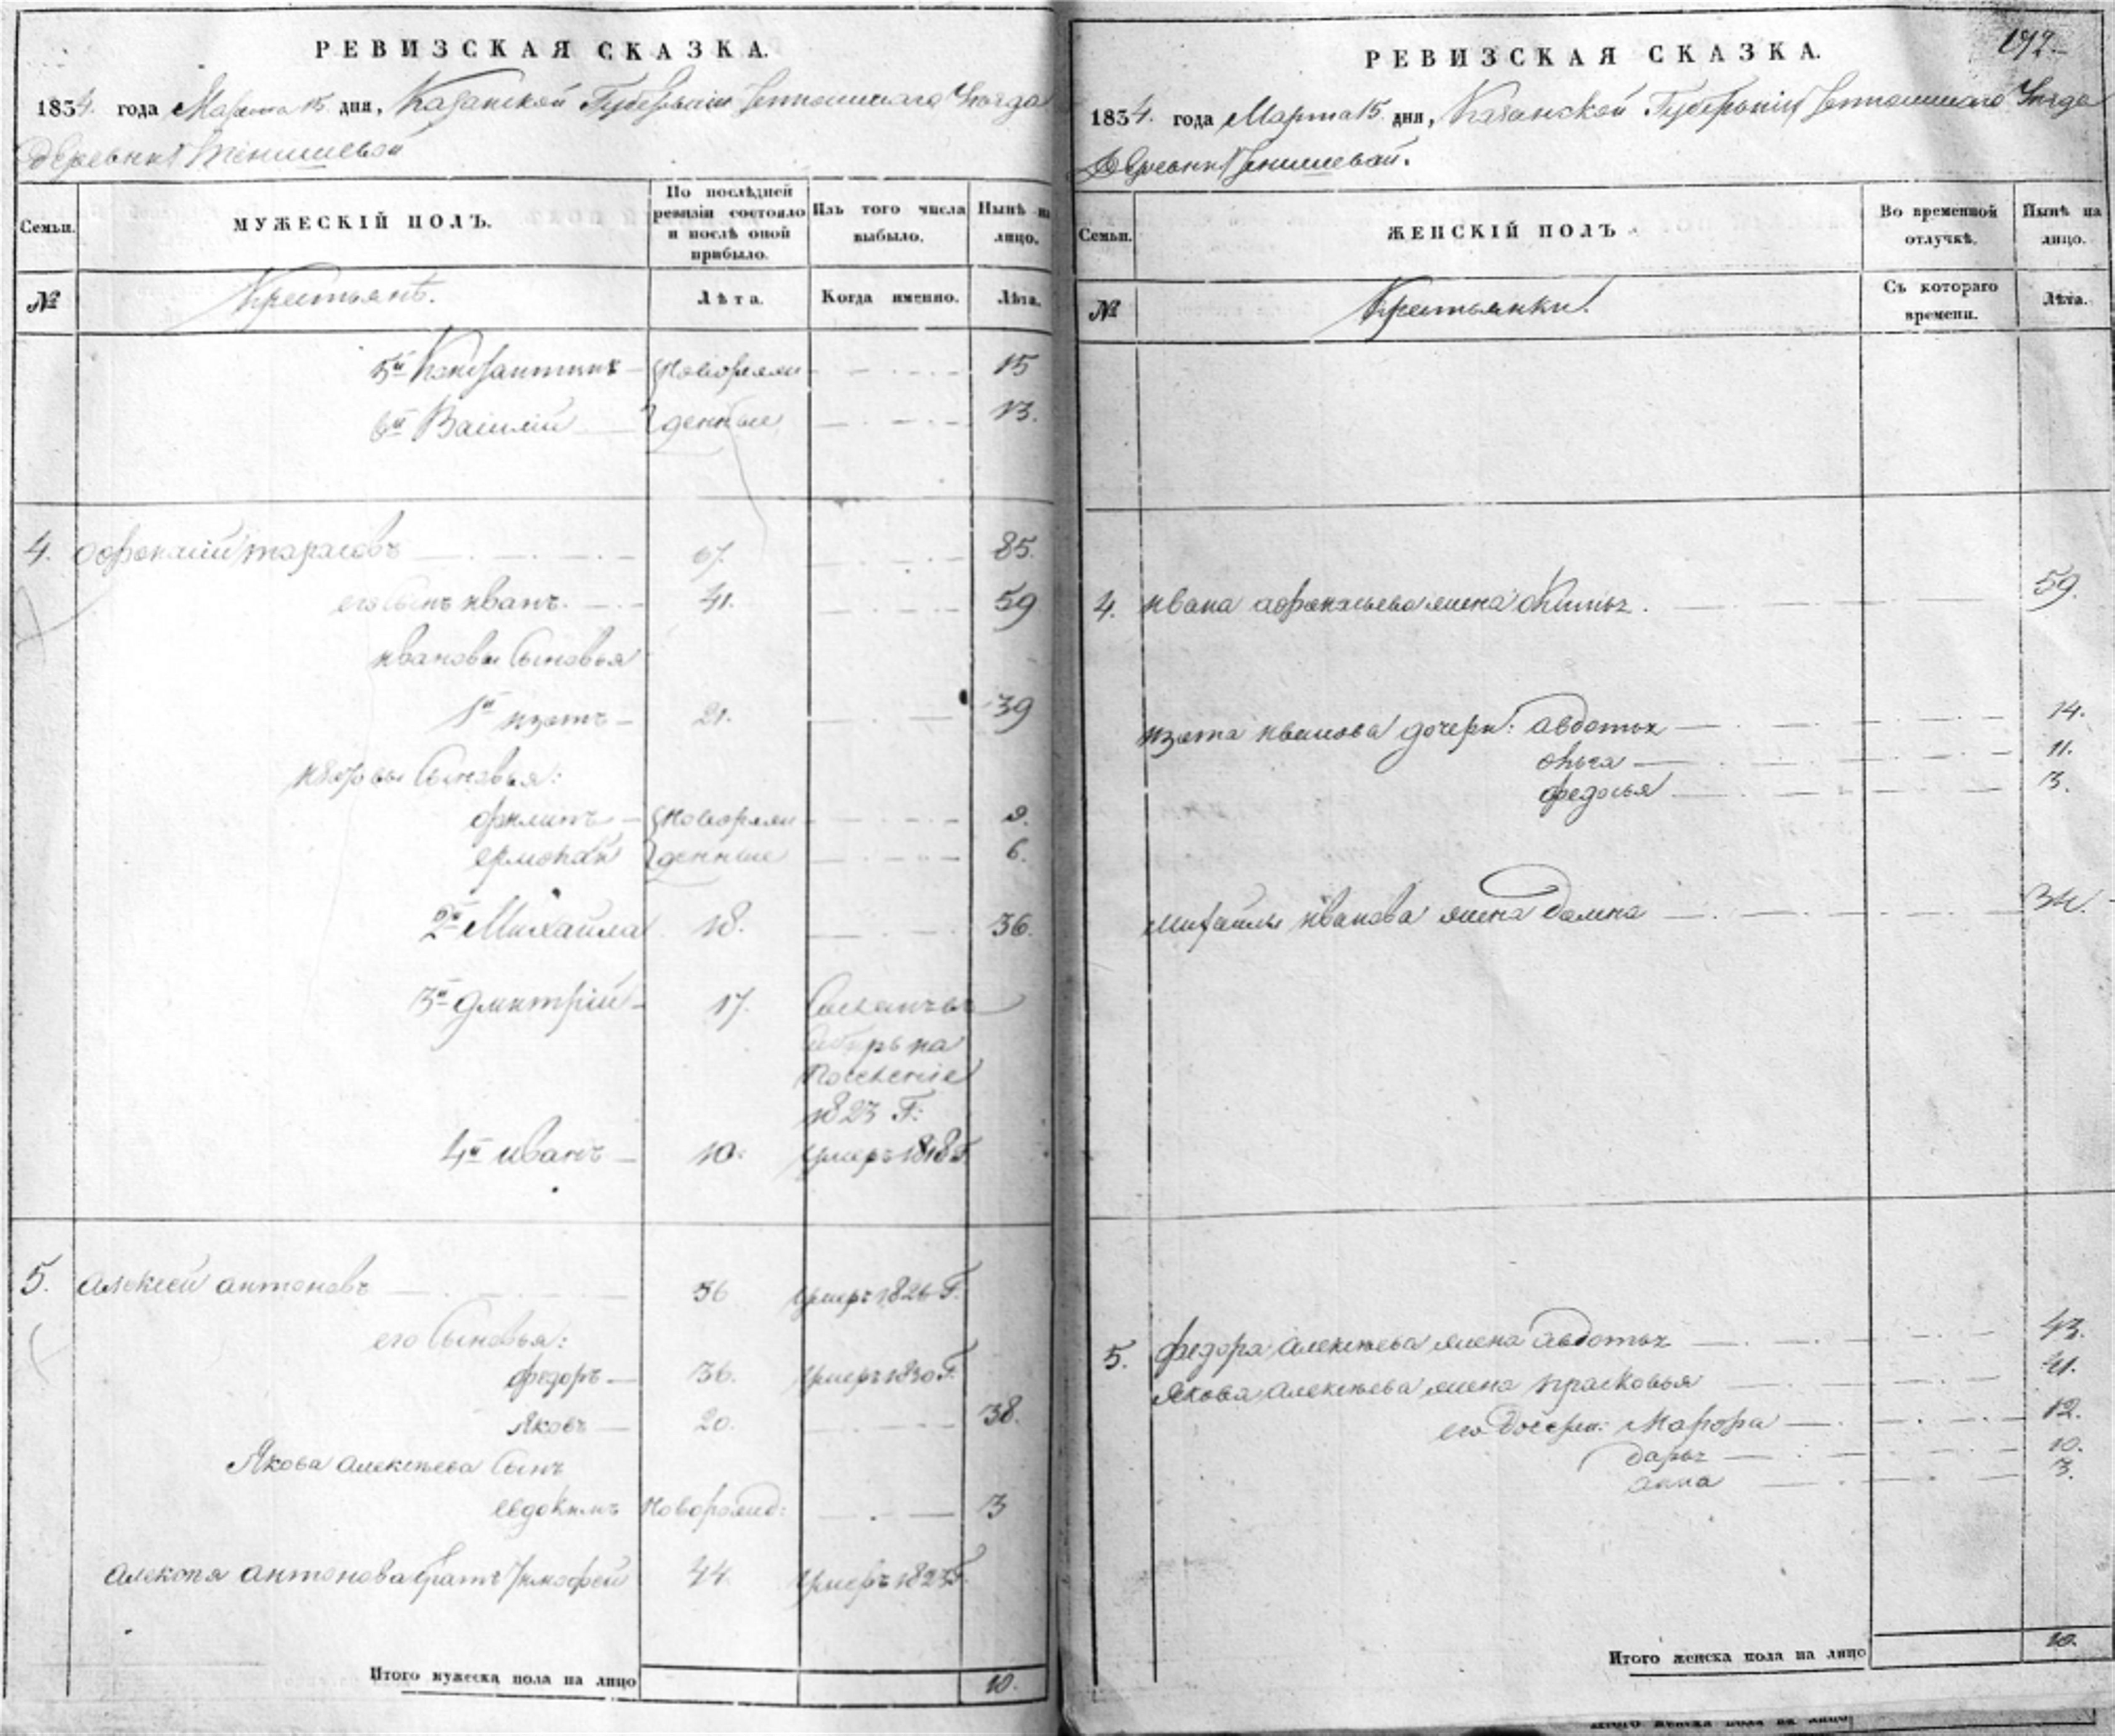 РЕВИЗСКАЯ СКАЗКА.
1834. года Марта 15. дня, Казанской Губернии Уезда
деревни
Семьи.
МУЖЕСКІЙ ПОЛЪ.
По послѣдней ревизіи состояло и послѣ оной прибыло.
Изъ того числа выбыло.
Нынѣ на лицо.
№
Крестьянъ.
Лѣта.
Когда именно.
Лѣта.
5й Константинъ — новорож — 15
6й Василій — денные — 13.
4. Афонасій Тарасовъ — 67. — 85.
его сынъ иванъ. — 41. — 59
ивановы сыновья
1й изотъ — 21. — 39
изотовы сыновья:
филипъ — новорож — 9.
ермолай — денные — 6.
2й Михайла 18. — 36.
3й дмитрій — 17. Сосланъ въ
сибирь на
поселеніе
1823 Г:
4й иванъ — 10. умеръ 1818 Г.
5. Алексей антоновъ — 56 умеръ 1826 Г.
его сыновья:
федоръ — 36. умеръ 1830 Г.
яковъ — 20. — 38.
Якова алексѣева сынъ
евдокимъ новорожд: — 3
алексѣя антонова братъ Тимофей 44. умеръ Г.
Итого мужеска пола на лицо 10.
192.
РЕВИЗСКАЯ СКАЗКА.
1834. года Марта 15. дня, Казанской Губерніи Уезда
Деревни
Семьи.
ЖЕНСКІЙ ПОЛЪ
Во временной отлучкѣ.
Нынѣ на лицо.
№
Крестьянки.
Съ котораго времени.
Лѣта.
4. ивана афонасьева жена — 59.
изота иванова дочери: авдотья — 14.
ольга — 11.
федосья — 3.
михайлы иванова жена домна — 34.
5. федора алексѣева жена авдотья — 43.
якова алексѣева жена прасковья — 41.
его дочери: Марфа — 12.
дарья — 10.
анна — 3.
Итого женска пола на лицо 10.
Итого женска пола на лицо